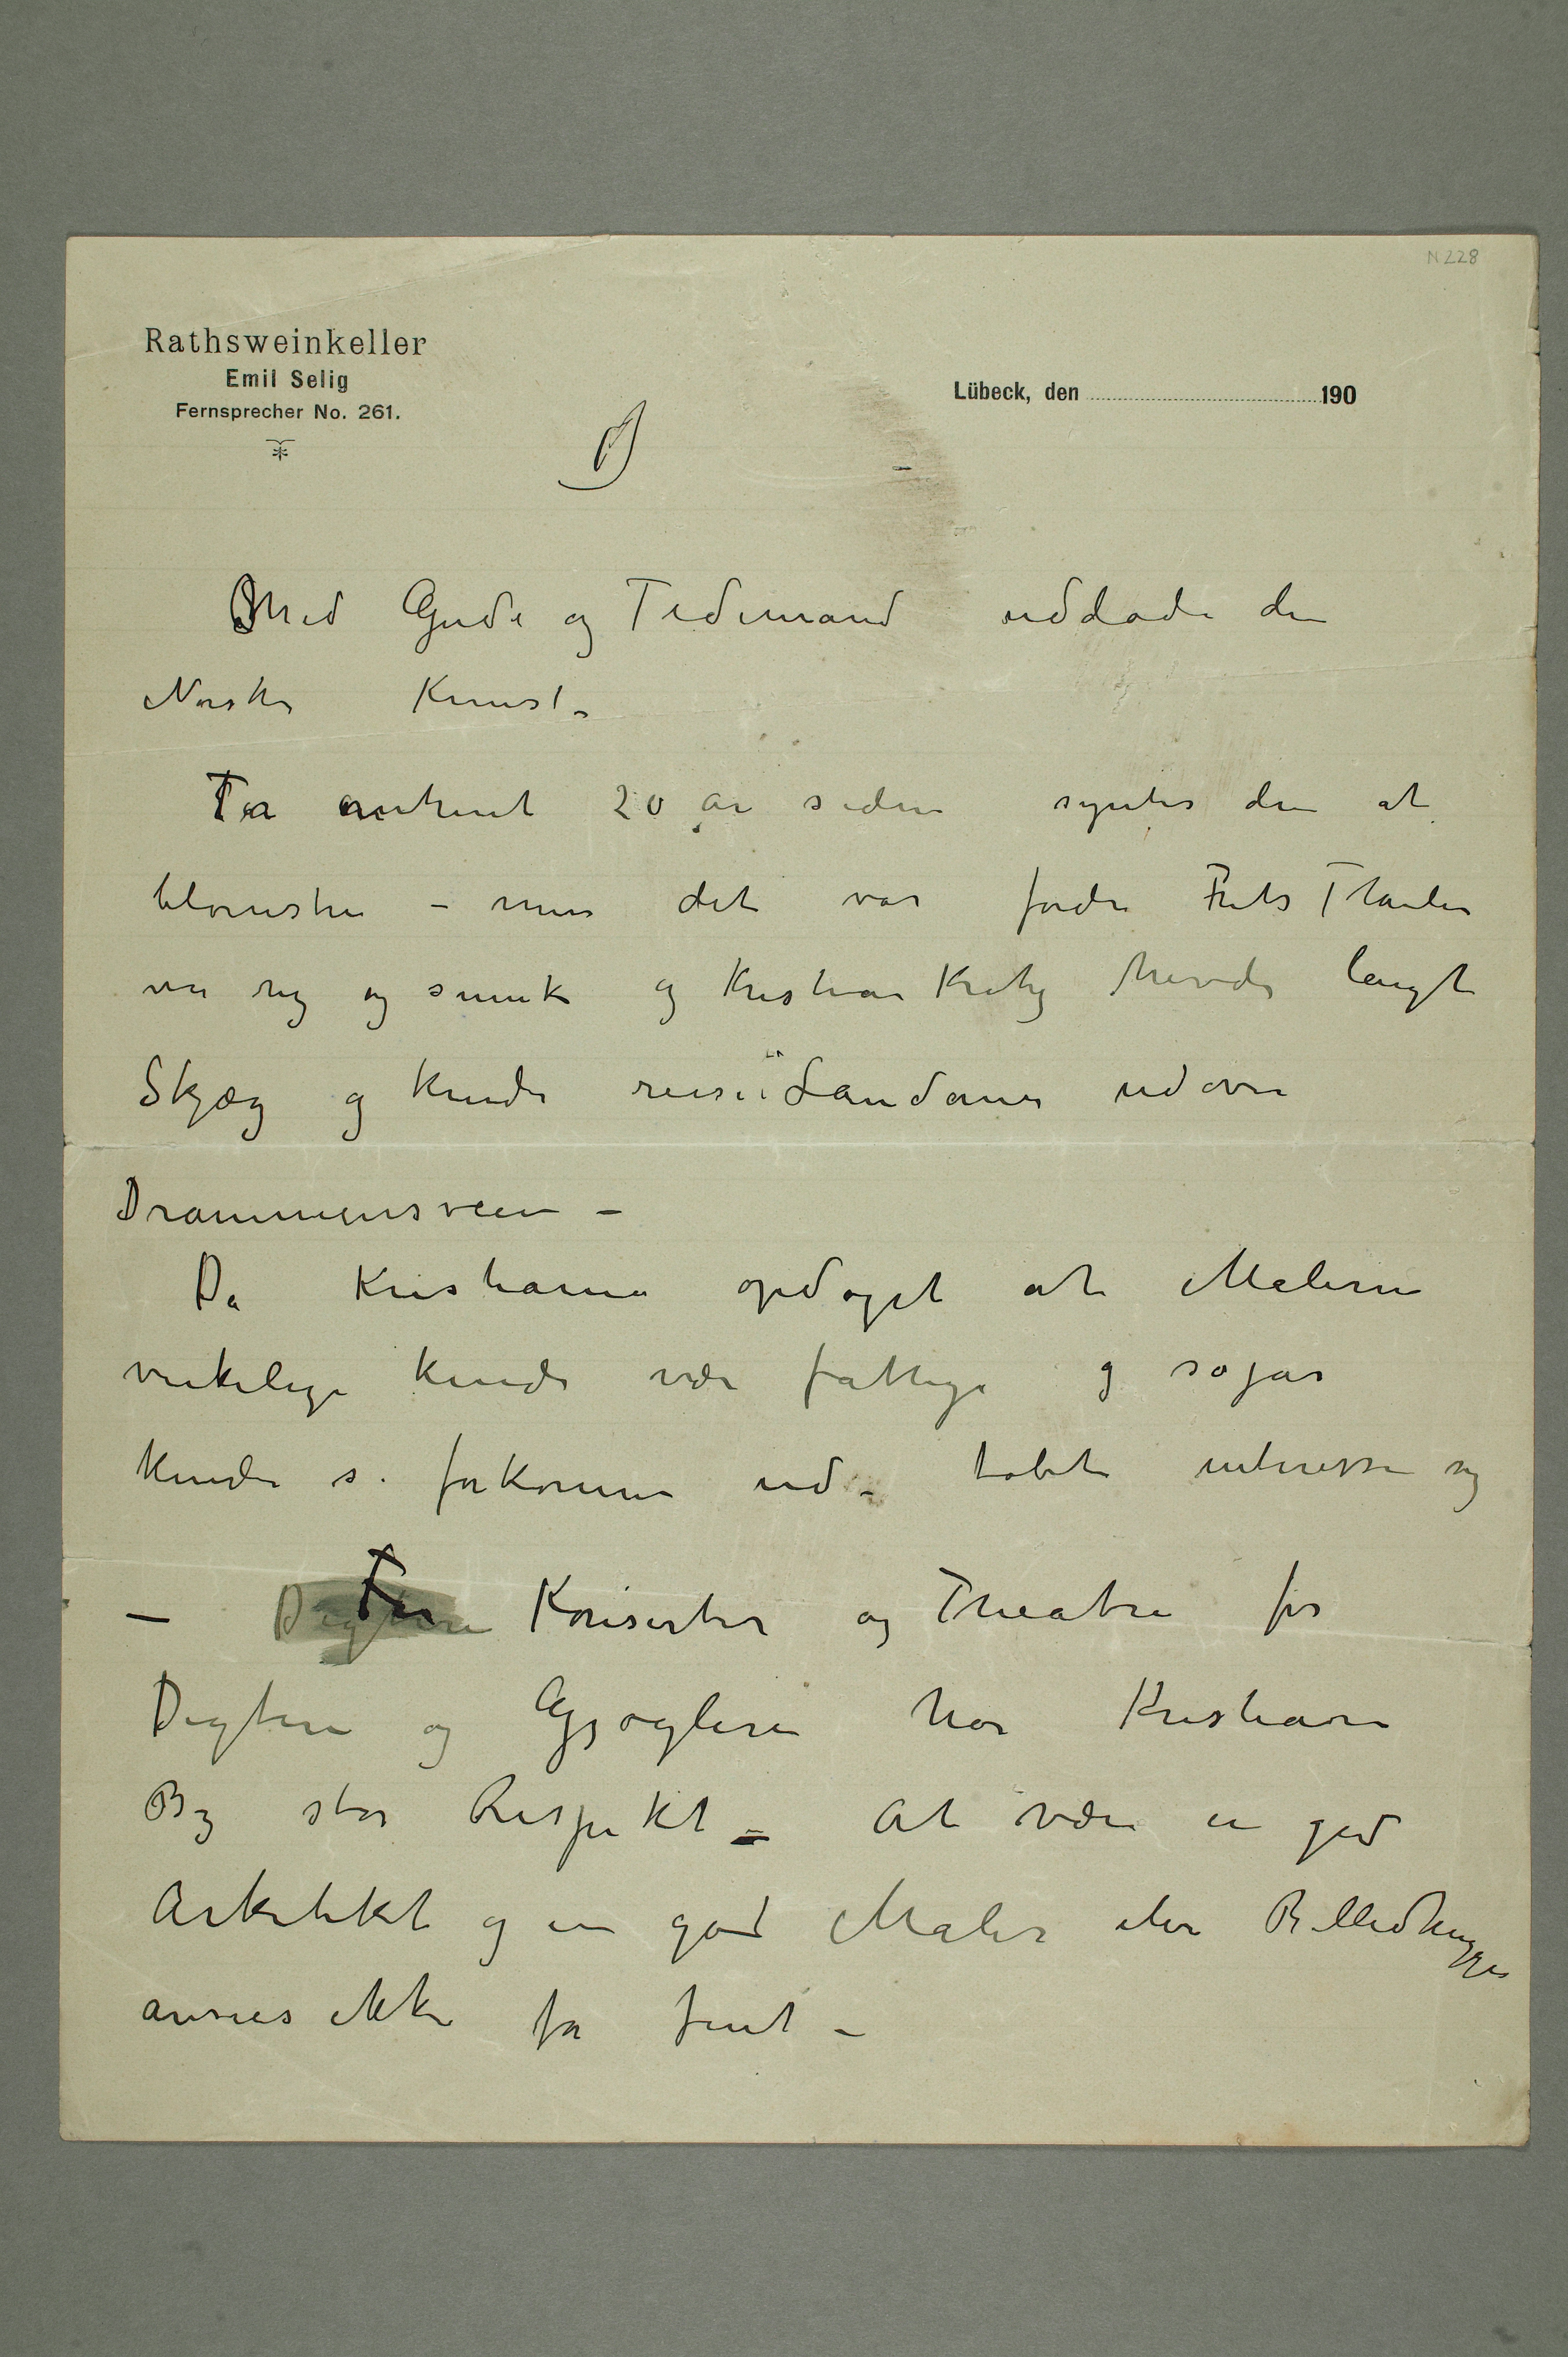 N 228
Rathsweinkeller
Emil Selig
Fernsprecher No. 261.
Lübeck, den 190
Med Gude og Tidemand uddøde den
Norske Kunst –
For omtrent 20 år siden syntes den at
blomstre – men det var fordi Frits Thaulov
var rig og smuk og Kristian Krohg havde langt
Skjæg og kunde reise i Landauer udover
Drammensveien –
Da Kristiania opdaget at Malerne
virkelige kunde være fattige og sogar
kunde se forkomne ud – tabte interessen sig
– For Konserter og Theatre for
Digtere og Gjøglere har Kristiania
By stor Respekt – At være en god
Arkitekt og en god Maler eller Billedhugger
ansees ikke for fint –